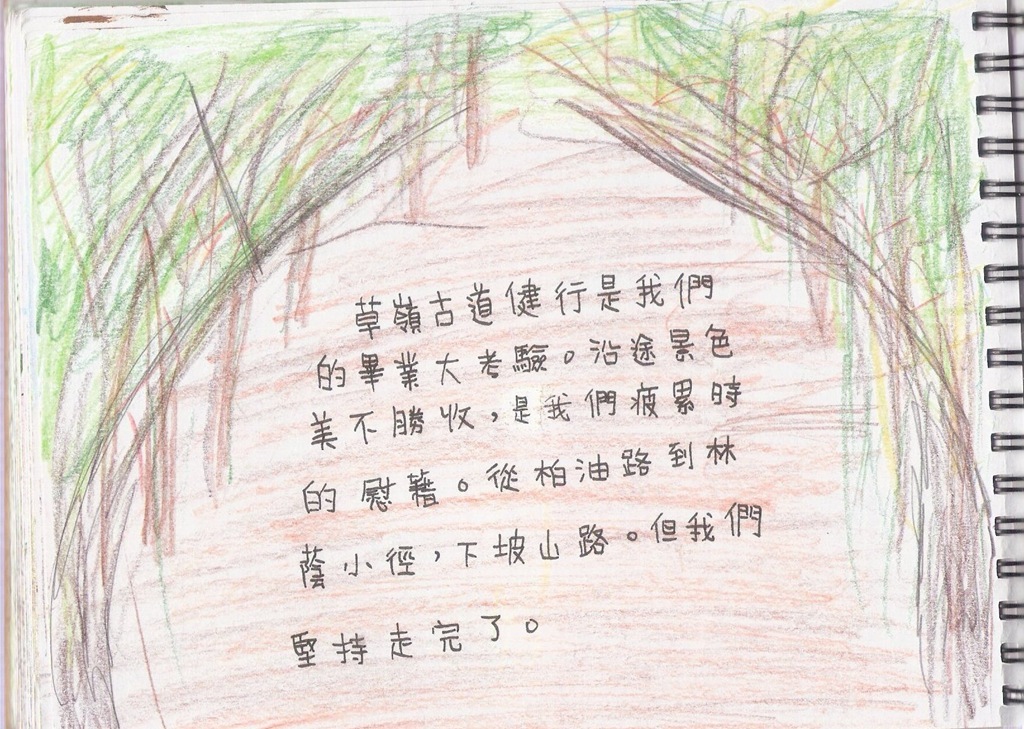 草嶺古道健行是我們
的畢業大考驗。沿途景色
美不勝收，是我們疲累時
的慰藉。從柏油路到林
蔭小徑，下坡山路。但我們
堅持走完了。